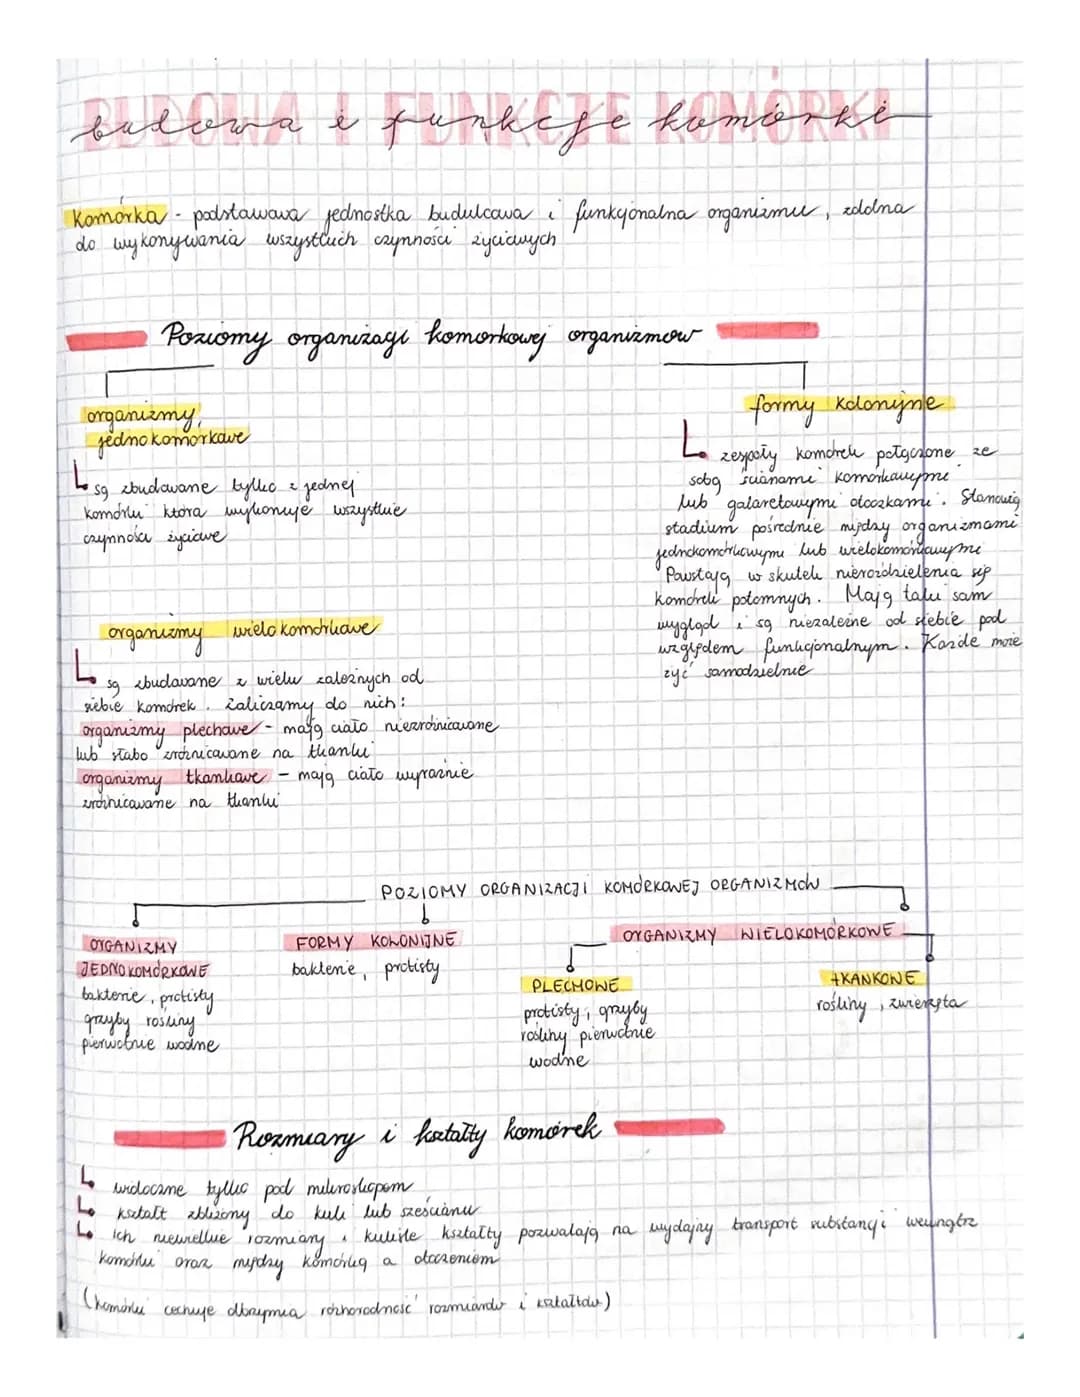 BUDOWA I FUNKCJE KOMÓRKI
budowa i funkcje komórki
Komórka - podstawowa jednostka budulcowa i funkcjonalna organizmu, zdolna
do wykonywania wszystkich czynności życiowych
Poziomy organizacji komórkowej organizmów
organizmy
jednokomórkowe
są zbudowane tylko z jednej
komórki która wykonuje wszystkie
czynności życiowe
organizmy wielokomórkowe
są zbudowane z wielu zależnych od
siebie komórek. Zaliczamy do nich:
organizmy plechowe - mają ciało niezróżnicowane
lub słabo zróżnicowane na tkanki
organizmy tkankowe - mają ciało wyraźnie
zróżnicowane na tkanki
formy kolonijne
zespoły komórek połączone ze
sobą ścianami komórkowymi
lub galaretowymi otoczkami. Stanowią
stadium pośrednie między organizmami
jednokomórkowymi lub wielokomórkowymi
Powstają w skutek nierozdzielenia się
komórek potomnych. Mają taki sam
wygląd i są niezależne od siebie pod
względem funkcjonalnym. Każde może
żyć samodzielnie
POZIOMY ORGANIZACJI KOMÓRKOWEJ ORGANIZMÓW
ORGANIZMY
JEDNOKOMÓRKOWE
bakterie, protisty
grzyby rośliny
pierwotnie wodne
FORMY KOLONIJNE
bakterie, protisty
ORGANIZMY WIELOKOMÓRKOWE
PLECHOWE
protisty, grzyby
rośliny pierwotnie
wodne
TKANKOWE
rośliny, zwierzęta
Rozmiary i kształty komórek
widoczne tylko pod mikroskopem
kształt zbliżony do kuli lub sześcianu
ich niewielkie rozmiary i kuliste kształty pozwalają na wydajny transport substancji wewnątrz
komórki oraz między komórką a otoczeniem
(komórki cechuje olbrzymia różnorodność rozmiarów i kształtów)